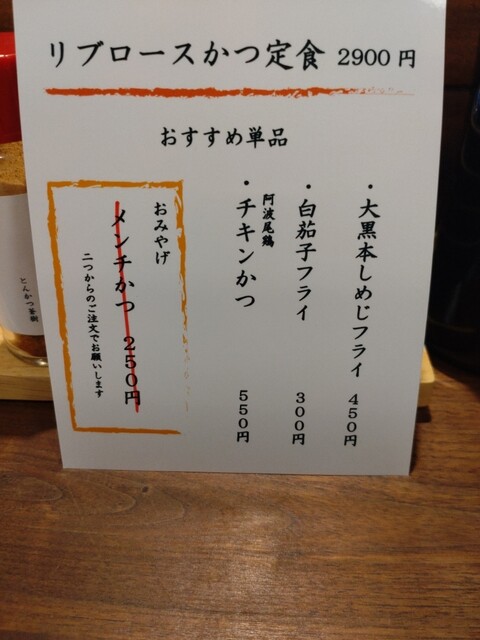 リブロースかつ定食 2900円
おすすめ単品
・大黒本しめじフライ 450円
・白茄子フライ 300円
阿波尾鶏
・チキンかつ 550円
おみやげ
メンチかつ 250円
二つからのご注文でお願いします